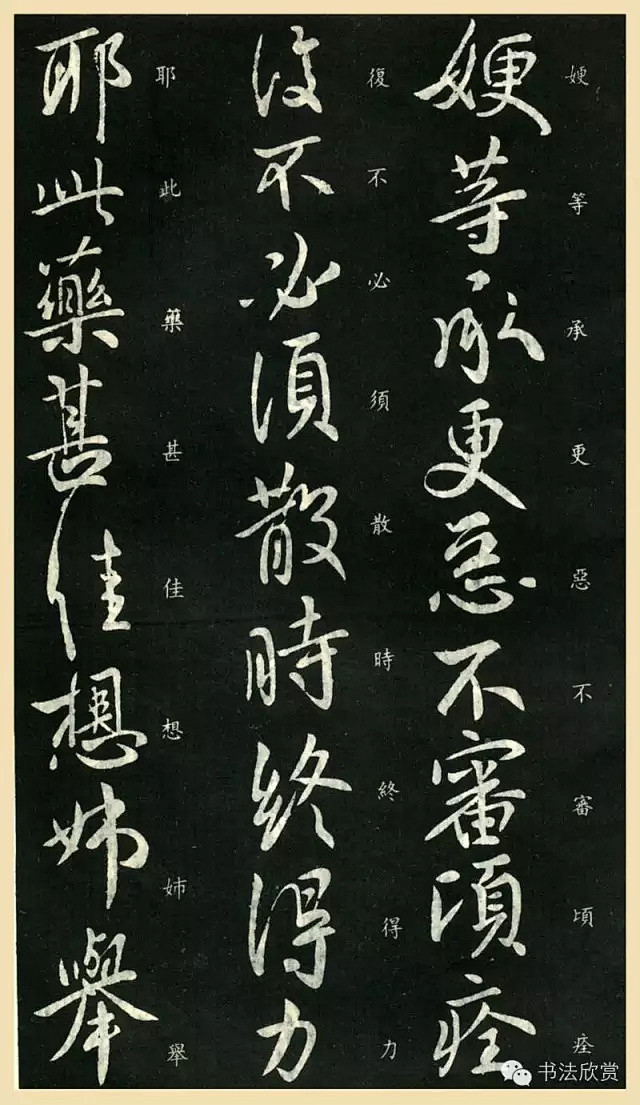 嫂等承更惡不審頃痊
嫂等承更惡不審頃痊
復不必須散時終得力
復不必須散時終得力
耶此藥甚佳想姊舉
耶此藥甚佳想姊舉
书法欣赏